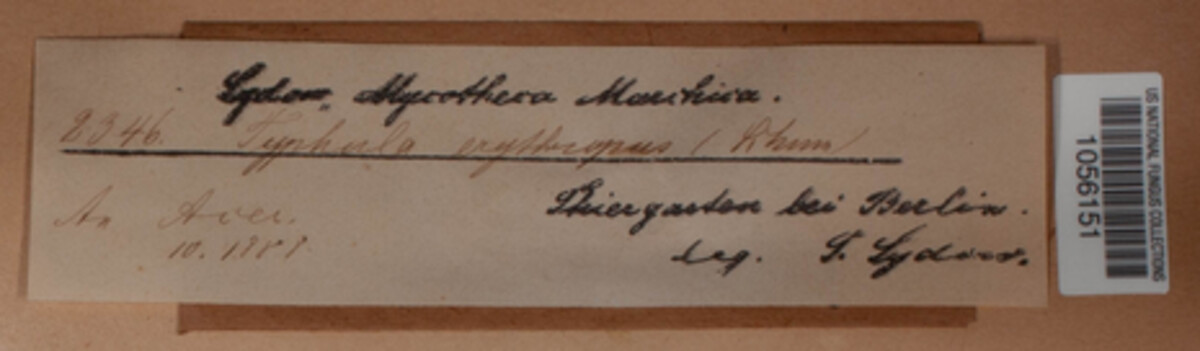 Sydow, Mycotheca Marchica.
2346. Typhula erythropus
An Acer.
10. 1888
Thiergarten bei Berlin.
leg. P. Sydow.
US NATIONAL FUNGUS COLLECTIONS
1056151